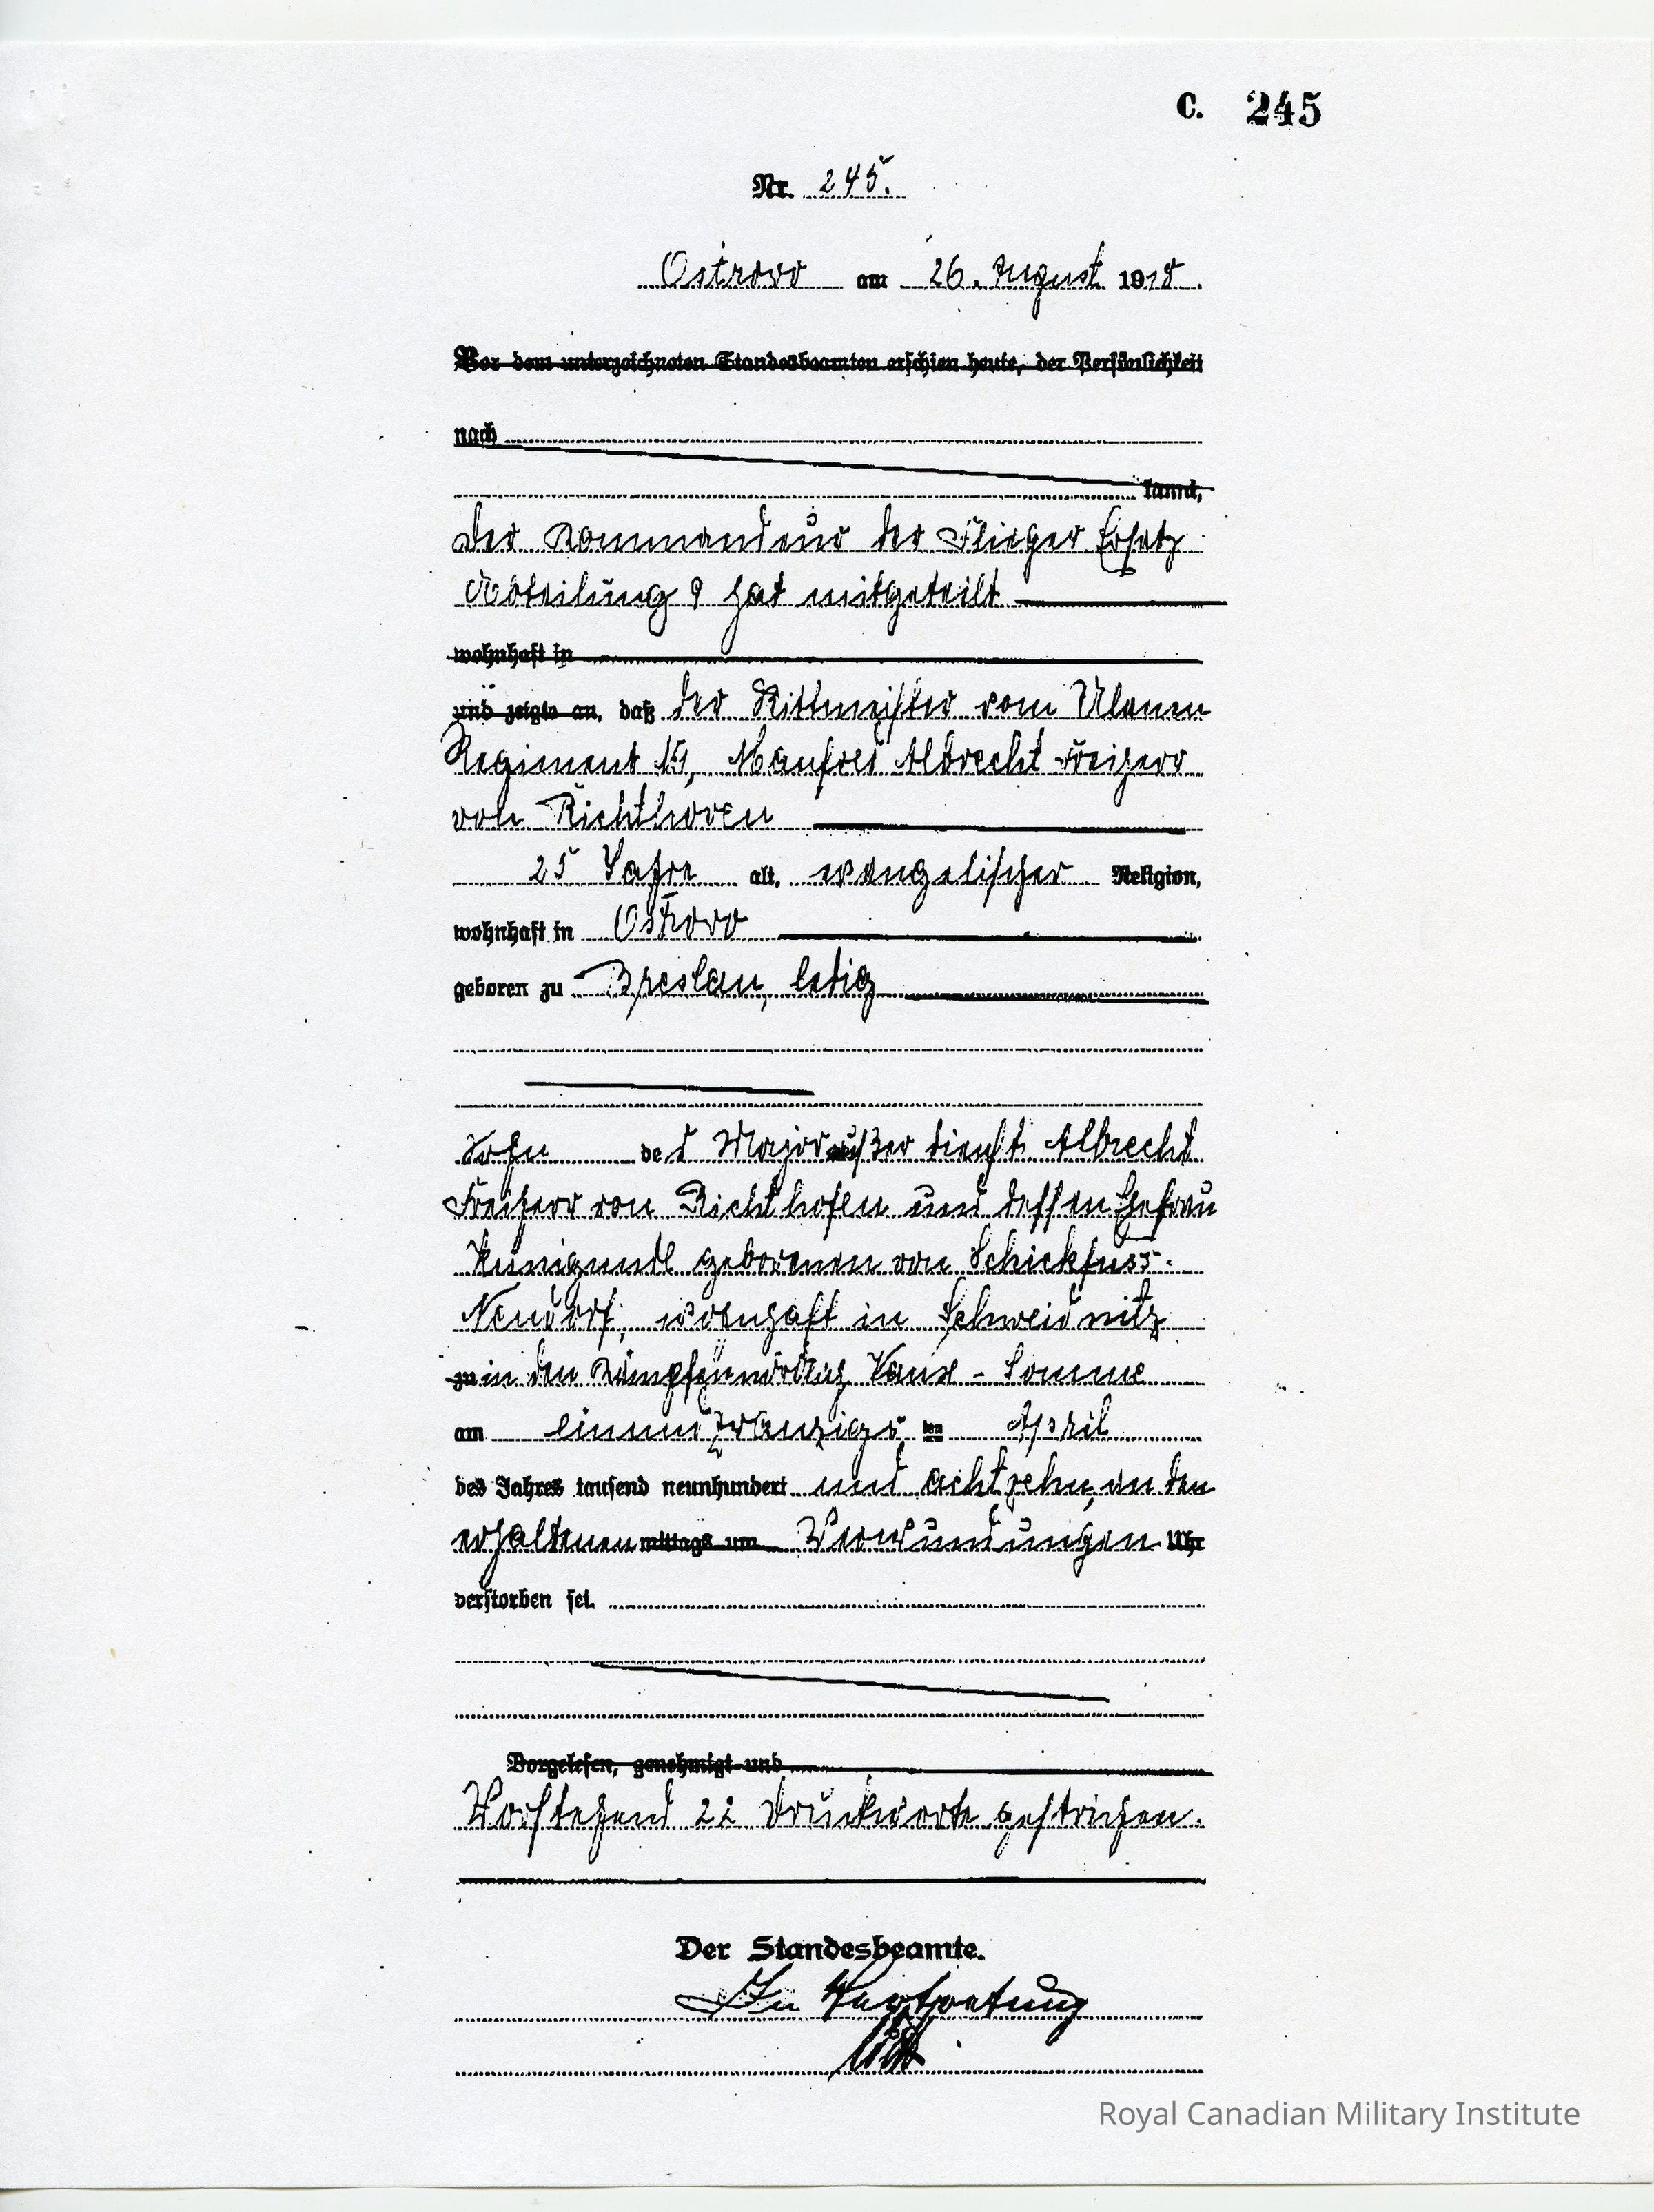 C. 245
Nr. 245.
Ostrowo am 26. August 1918.
Vor dem unterzeichneten Standesbeamten erschien heute, der Persönlichkeit
nach
kannt,
der Kommandeur der Flieger Ersatz
Abteilung 9 hat mitgeteilt
wohnhaft in
und zeigte an, daß der Rittmeister vom Ulanen
Regiment Manfred Albrecht Freiherr
von Richthoven
25 Jahre alt, evangelischer Religion,
wohnhaft in Ostrowo
geboren zu Breslau, ledig
Sohn des Major außer Dienst Albrecht
Freiherr von Richthofen und dessen Ehefrau
Kunigunde geborenen von Schickfuss-
Neudorf, wohnhaft in Schweidnitz
zu in den Kämpfen nördlich Vaux - Somme
am einundzwanzigsten April
des Jahres tausend neunhundert und achtzehn, an den
erhaltenen mittags um Verwundungen Uhr
verstorben sei.
Vorgelesen, genehmigt und
Vorstehend 22 Druckworte gestrichen.
Der Standesbeamte.
In Vertretung
Royal Canadian Military Institute